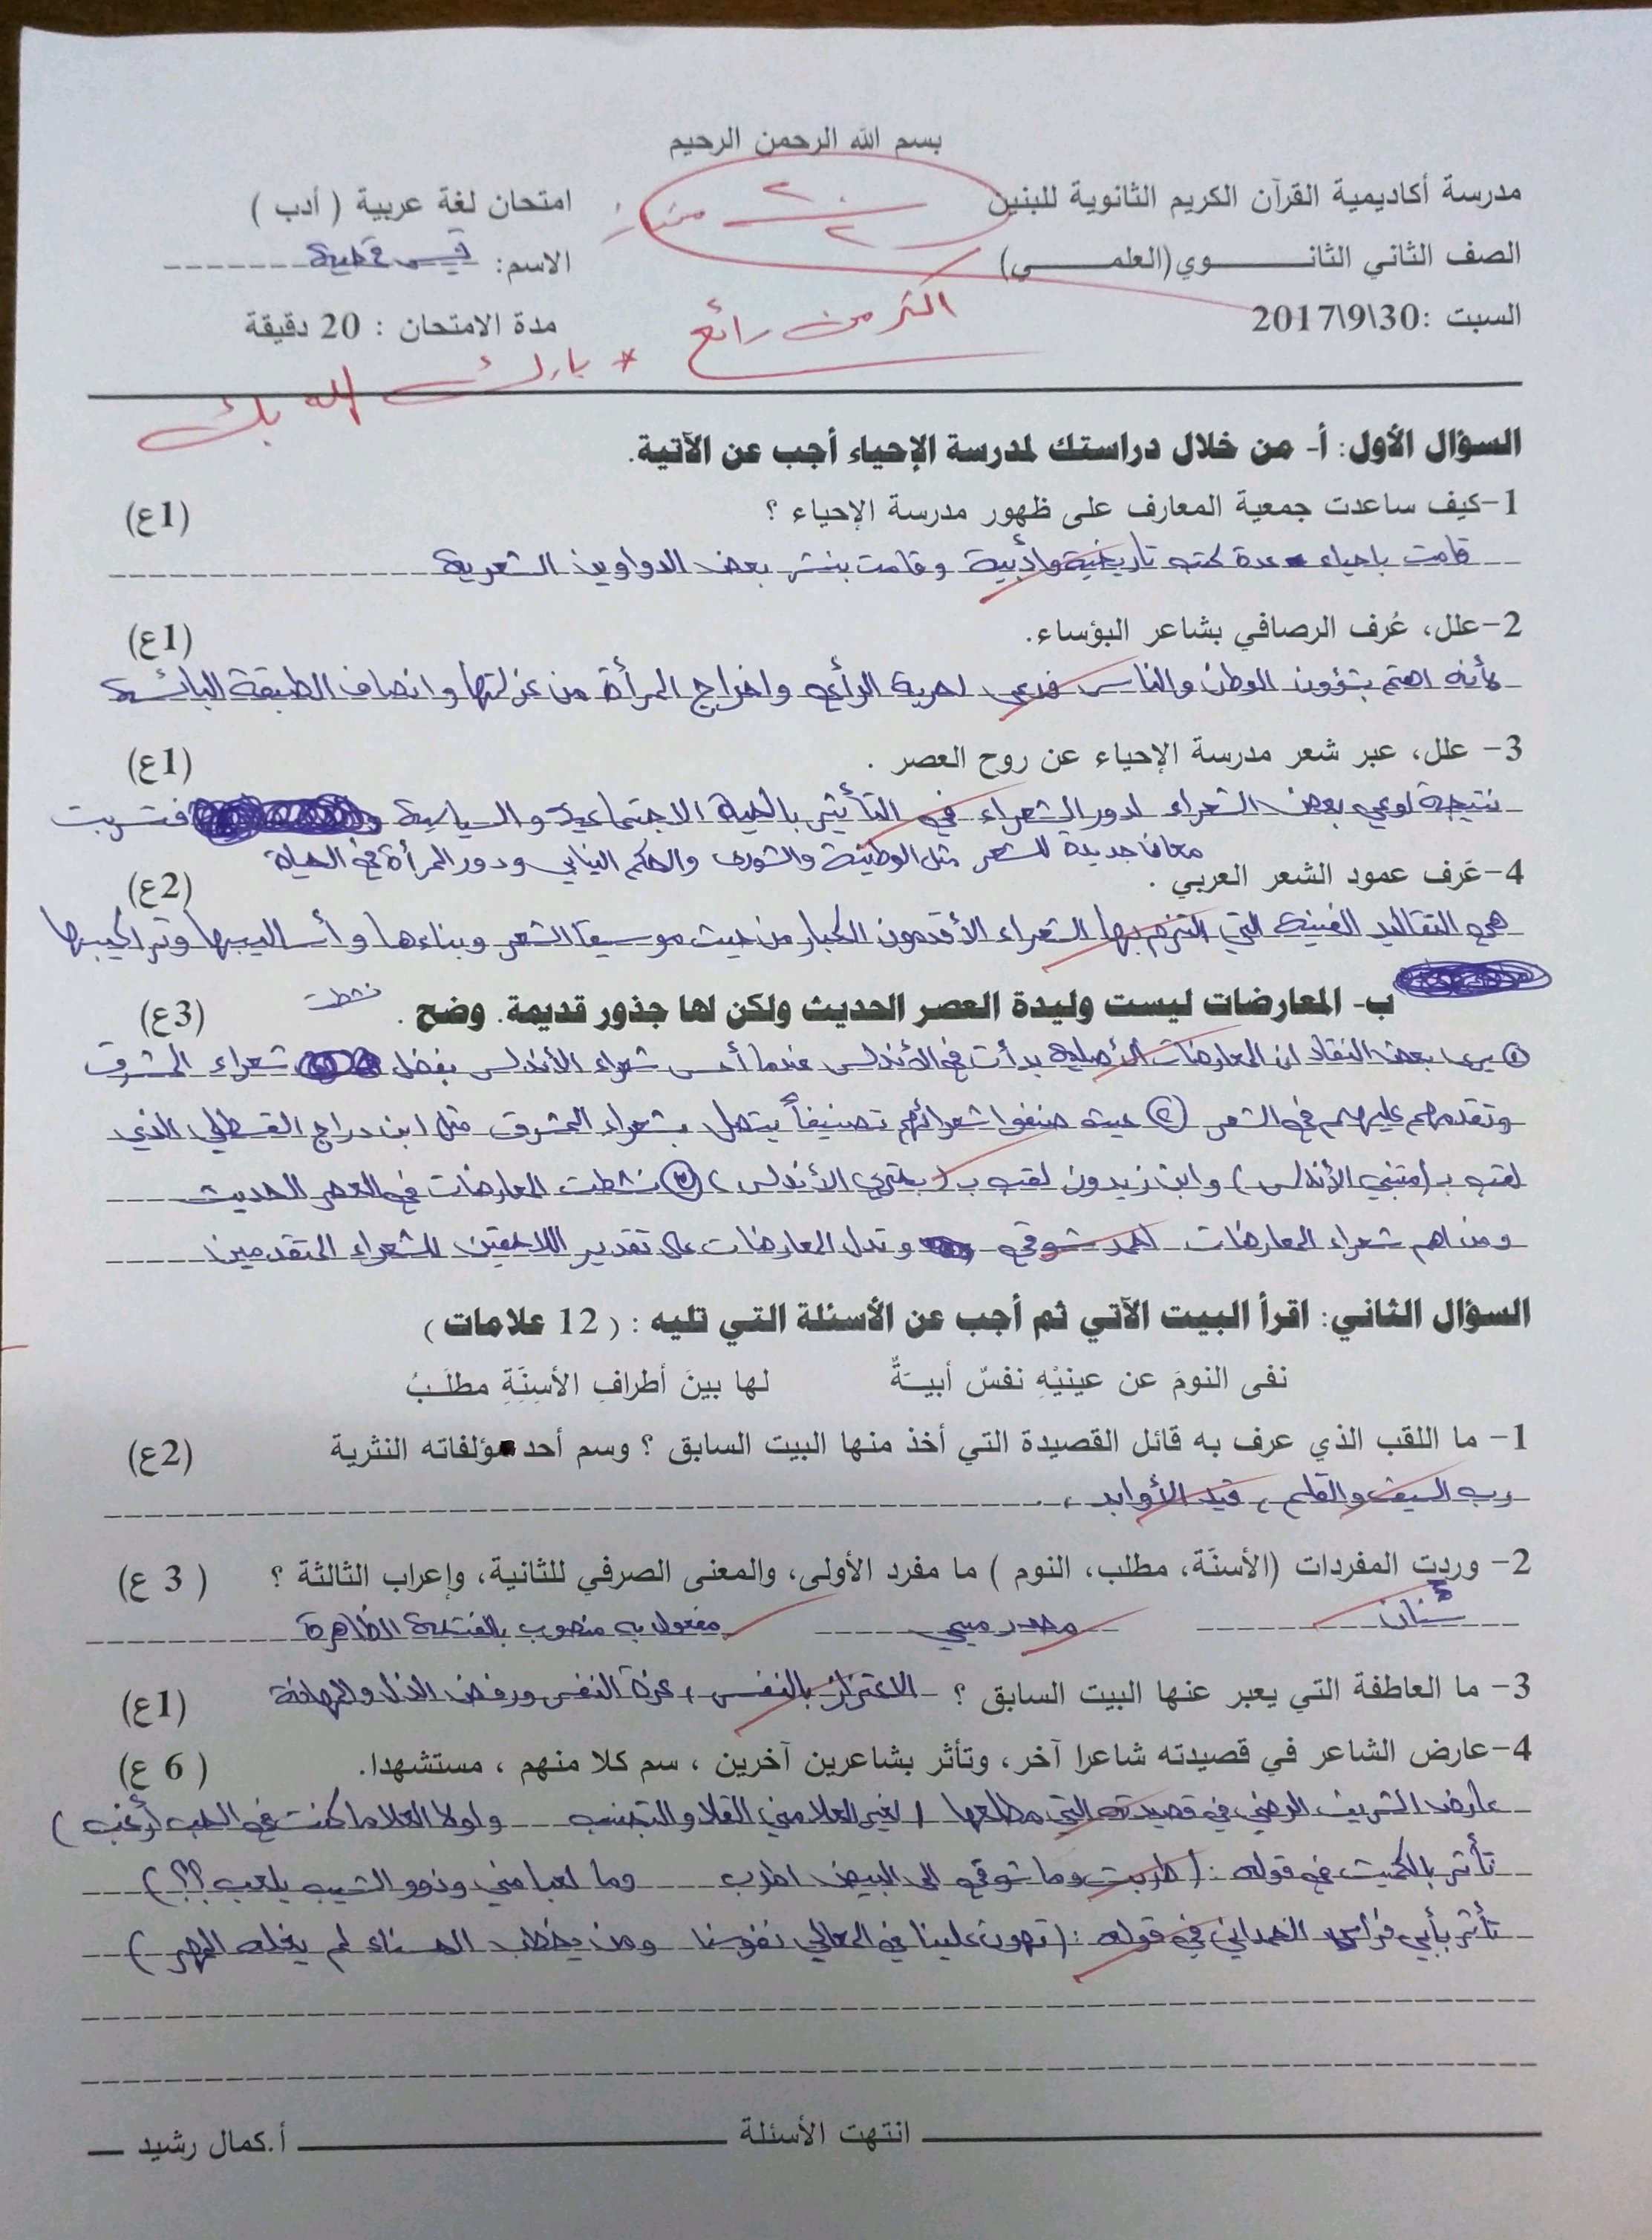 بسم الله الرحمن الرحيم
مدرسة أكاديمية القرآن الكريم الثانوية للبنين
امتحان لغة عربية ( أدب )
٢٠
٢٠
ممتاز
الصف الثاني الثانــــــــوي(العلمــــــى)
الاسم: قيس
السبت :30\9\2017
مدة الامتحان : 20 دقيقة
اكثر من رائع * بارك الله بك
السؤال الأول: أ- من خلال دراستك لمدرسة الإحياء أجب عن الآتية.
1-كيف ساعدت جمعية المعارف على ظهور مدرسة الإحياء ؟ (1ع)
قامت باحياء عدة كتب تاريخية وأدبية وقامت بنشر بعض الدواوين الشعرية
2-علل، عُرف الرصافي بشاعر البؤساء. (1ع)
لأنه اهتم بشؤون الوطن والناس فدعى لحرية الرأي واخراج المرأة من عزلتها وانصاف الطبقة البائسة
3- علل، عبر شعر مدرسة الإحياء عن روح العصر . (1ع)
نتيجة لوعي بعض الشعراء لدور الشعراء في التأثير بالحياة الاجتماعية والسياسية فتسربت
معان جديدة للشعر مثل الوطنية والشورى والحكم النيابي ودور المرأة في الحياة
4-عَرف عمود الشعر العربي . (2ع)
هي التقاليد الفنية التي التزم بها الشعراء الأقدمون الكبار من حيث موسيقا الشعر وبناءها وأساليبها وتراكيبها
ب- المعارضات ليست وليدة العصر الحديث ولكن لها جذور قديمة. وضح . (3ع)
نشطت
① يرى بعض النقاد ان المعارضات الأصلية بدأت في الأندلس عندما أحس شعراء الأندلس بفضل شعراء المشرق
وتقدمهم عليهم في الشعر ② حيث صنفوا شعرائهم تصنيفاً يتصل بشعراء المشرق مثل ابن دراج القسطلي الذي
لقب بـ (متنبي الأندلس) وابن زيدون لقب بـ (بحتري الأندلس) ③ نشطت المعارضات في العصر الحديث
ومن اهم شعراء المعارضات احمد شوقي وتدل المعارضات على تقدير اللاحقين للشعراء المتقدمين
السؤال الثاني: اقرأ البيت الآتي ثم أجب عن الأسئلة التي تليه : ( 12 علامات )
نفى النومَ عن عينيْهِ نفسٌ أبيــَةٌ لها بينَ أطرافِ الأسِنِّةِ مطلَـبُ
1- ما اللقب الذي عرف به قائل القصيدة التي أخذ منها البيت السابق ؟ وسم أحد مؤلفاته النثرية (2ع)
رب السيف والقلم ، قيد الأوابد .
2- وردت المفردات (الأسنّة، مطلب، النوم ) ما مفرد الأولى، والمعنى الصرفي للثانية، وإعراب الثالثة ؟ ( 3 ع)
سنان مصدر ميمي مفعول به منصوب بالفتحة الظاهرة
3- ما العاطفة التي يعبر عنها البيت السابق ؟ الاعتزاز بالنفس ، عزة النفس ورفض الذل والمهانة (1ع)
4-عارض الشاعر في قصيدته شاعرا آخر، وتأثر بشاعرين آخرين ، سم كلا منهم ، مستشهدا. ( 6 ع)
عارض الشريف الرضي في قصيدته التي مطلعها (لغير العلا مني القلا والتجنب ولولا العلا ما كنت في الحب أرغب )
تأثر بالكميت في قوله : ( طربت وما شوقي الى البيض اطرب وما لعبا مني وذو الشيب يلعب ؟؟ )
تأثر بأبي فراس الحمداني في قوله : (تهون علينا في المعالي نفوسنا ومن يخطب الحسناء لم يغله المهر )
انتهت الأسئلة
أ.كمال رشيد